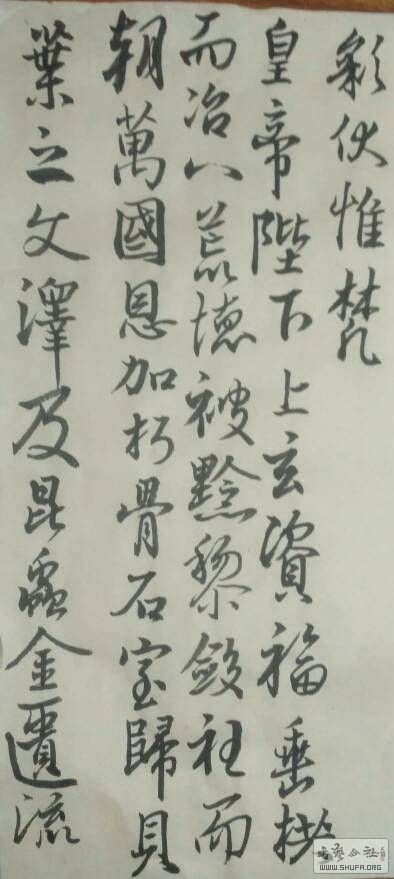 彩伏惟梵
皇帝陛下上玄資福垂拱
而治八荒德被黔黎斂衽而
朝萬國恩加朽骨石室歸貝
葉之文澤及昆蟲金匱流
WWW.SHUFA.ORG